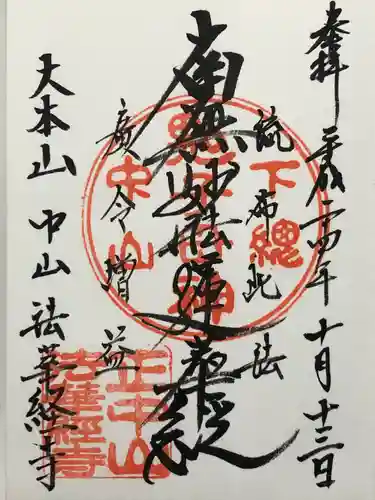 奉拝 平成二四年十月十三日
流布此法
南無妙法蓮華経
廣令増益
大本山 中山 法華経寺
下總
中山
正中山
法華経寺